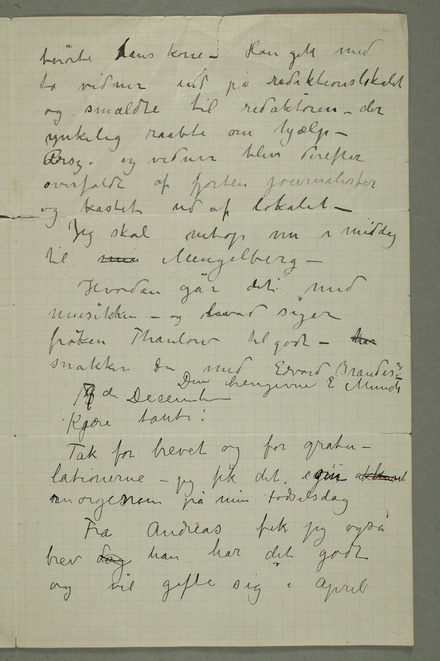 berørte hans kone – Han gik med
to vidner ind på redaktionslokalet
og smældte til redaktøren – der
ynkelig raabte om hjælp –
og vidner blev derefter
overfaldt af fjorten journalister
og kastet ud af lokalet –
Jeg skal netop nu i middag
til Mengelberg –
Hvordan går det med
musikken – og hvad siger
frøken Thaulow til godt –
snakker De med Edvard Brandes?
Din hengivne E Munch
de December
Kjære tante!
Tak for brevet og for gratu–
lationerne – jeg fik det
morgenen på min fødselsdag
Fra Andreas fik jeg også
brev han har det godt
og vil gifte sig i April